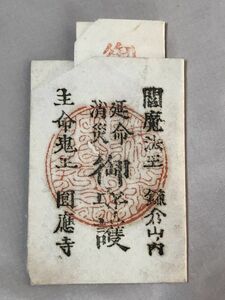 御
閻魔法王 鎌倉山ノ内
延命
消災
御守護
主命鬼王 圓應寺